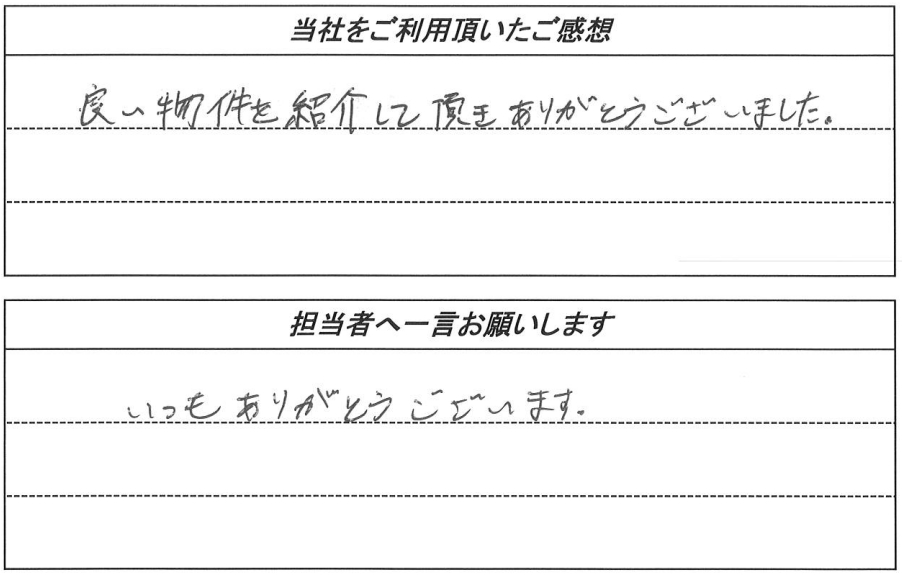 当社をご利用頂いたご感想
良い物件を紹介して頂きありがとうございました。
担当者へ一言お願いします
いつもありがとうございます。